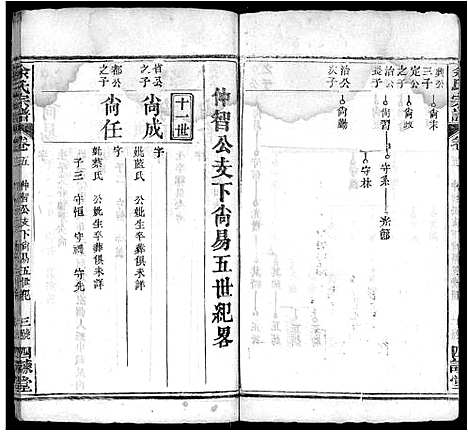 興公
三子
尙宋
定公
之子
尙政
治公
長子
尙習
守系
光節
守林
治公
次子
尙鵾
仲智公支下尙易五世紀畧
十一世
省公
之子
尙成
字
妣藍氏 公妣生卒葬俱未詳
都公
之子
尙任
字
妣蔡氏 公妣生卒葬俱未詳
子三 守恒 守禮 守先
余氏宗譜
卷五
仲智公支下尙易五世紀
三號
四諫堂